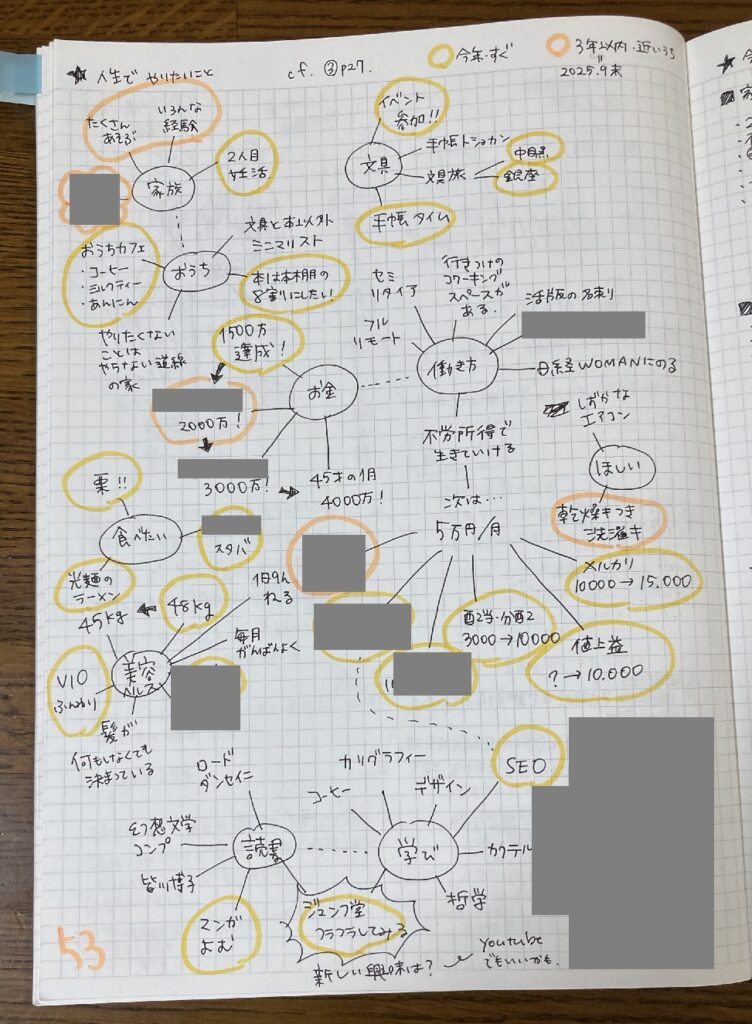 ★ 人生で やりたいこと
cf. ③p27.
今年・すぐ
3年以内・近いうち
2025.9末
たくさん
あそぶ
いろんな
経験
家族
2人目
妊活
イベント
参加!!
文具
手帳トショカン
文具旅
中目黒
銀座
手帳タイム
おうち
おうちカフェ
・コーヒー
・ミルクティー
・あんにん
文具と本以外
ミニマリスト
本は本棚の
8割りにしたい!
やりたくない
ことは
やらない導線
の家
働き方
セミ
リタイア
フル
リモート
行きつけの
コワーキング
スペースが
ある.
活版の名刺り
日経WOMANにのる
不労所得で
生きていける
次は…
5万円/月
お金
1500万
達成!
2000万!
3000万!
45才の1月
4000万!
ほしい
しずかな
エアコン
乾燥キつき
洗濯キ
メルカリ
10000→15.000
値上益
?→10.000
配当・分配
3000→10000
食べたい
栗!!
スタバ
光麺の
ラーメン
美容
ヘルス
48kg
45kg
1日9h
ねる
毎月
がんばんよく
VIO
髪が
何もしなくても
決まっている
読書
ロード
ダンセイニ
幻想文学
コンプ
皆川博子
マンガ
よむ
学び
コーヒー
カリグラフィー
デザイン
SEO
カクテル
哲学
ジュンク堂
フラフラしてみる
新しい興味は?
Youtube
でもいいかも.
53